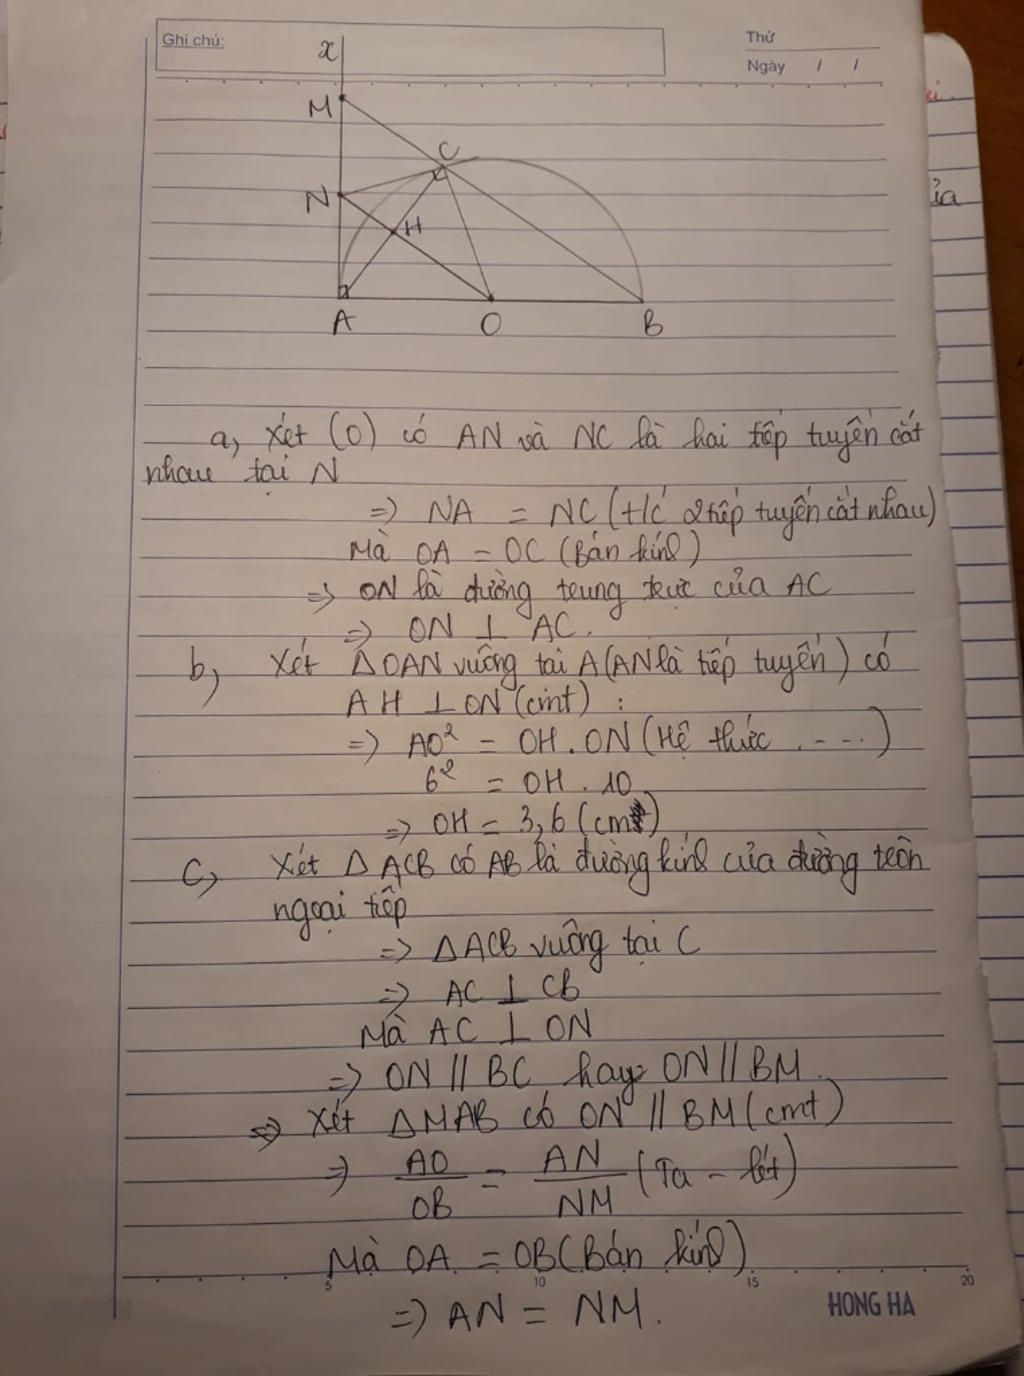 Ghi chú:
Thứ
Ngày / /
x
M
C
N
H
A O B
a, Xét (O) có AN và NC là hai tiếp tuyến cắt
nhau tại N
=> NA = NC (t/c 2 tiếp tuyến cắt nhau)
Mà OA = OC (Bán kính)
=> ON là đường trung trực của AC
=> ON ⊥ AC.
b, Xét ΔOAN vuông tại A (AN là tiếp tuyến) có
AH ⊥ ON (cmt) :
=> AO² = OH. ON (Hệ thức ....)
6² = OH . 10
=> OH = 3,6 (cm)
c, Xét Δ ACB có AB là đường kính của đường tròn
ngoại tiếp
=> ΔACB vuông tại C
=> AC ⊥ CB
Mà AC ⊥ ON
=> ON // BC hay ON // BM.
=> Xét ΔMAB có ON // BM (cmt)
=> AO/OB = AN/NM (Ta - lét)
Mà OA = OB (Bán kính)
5 10 15 20
=> AN = NM.
HONG HA